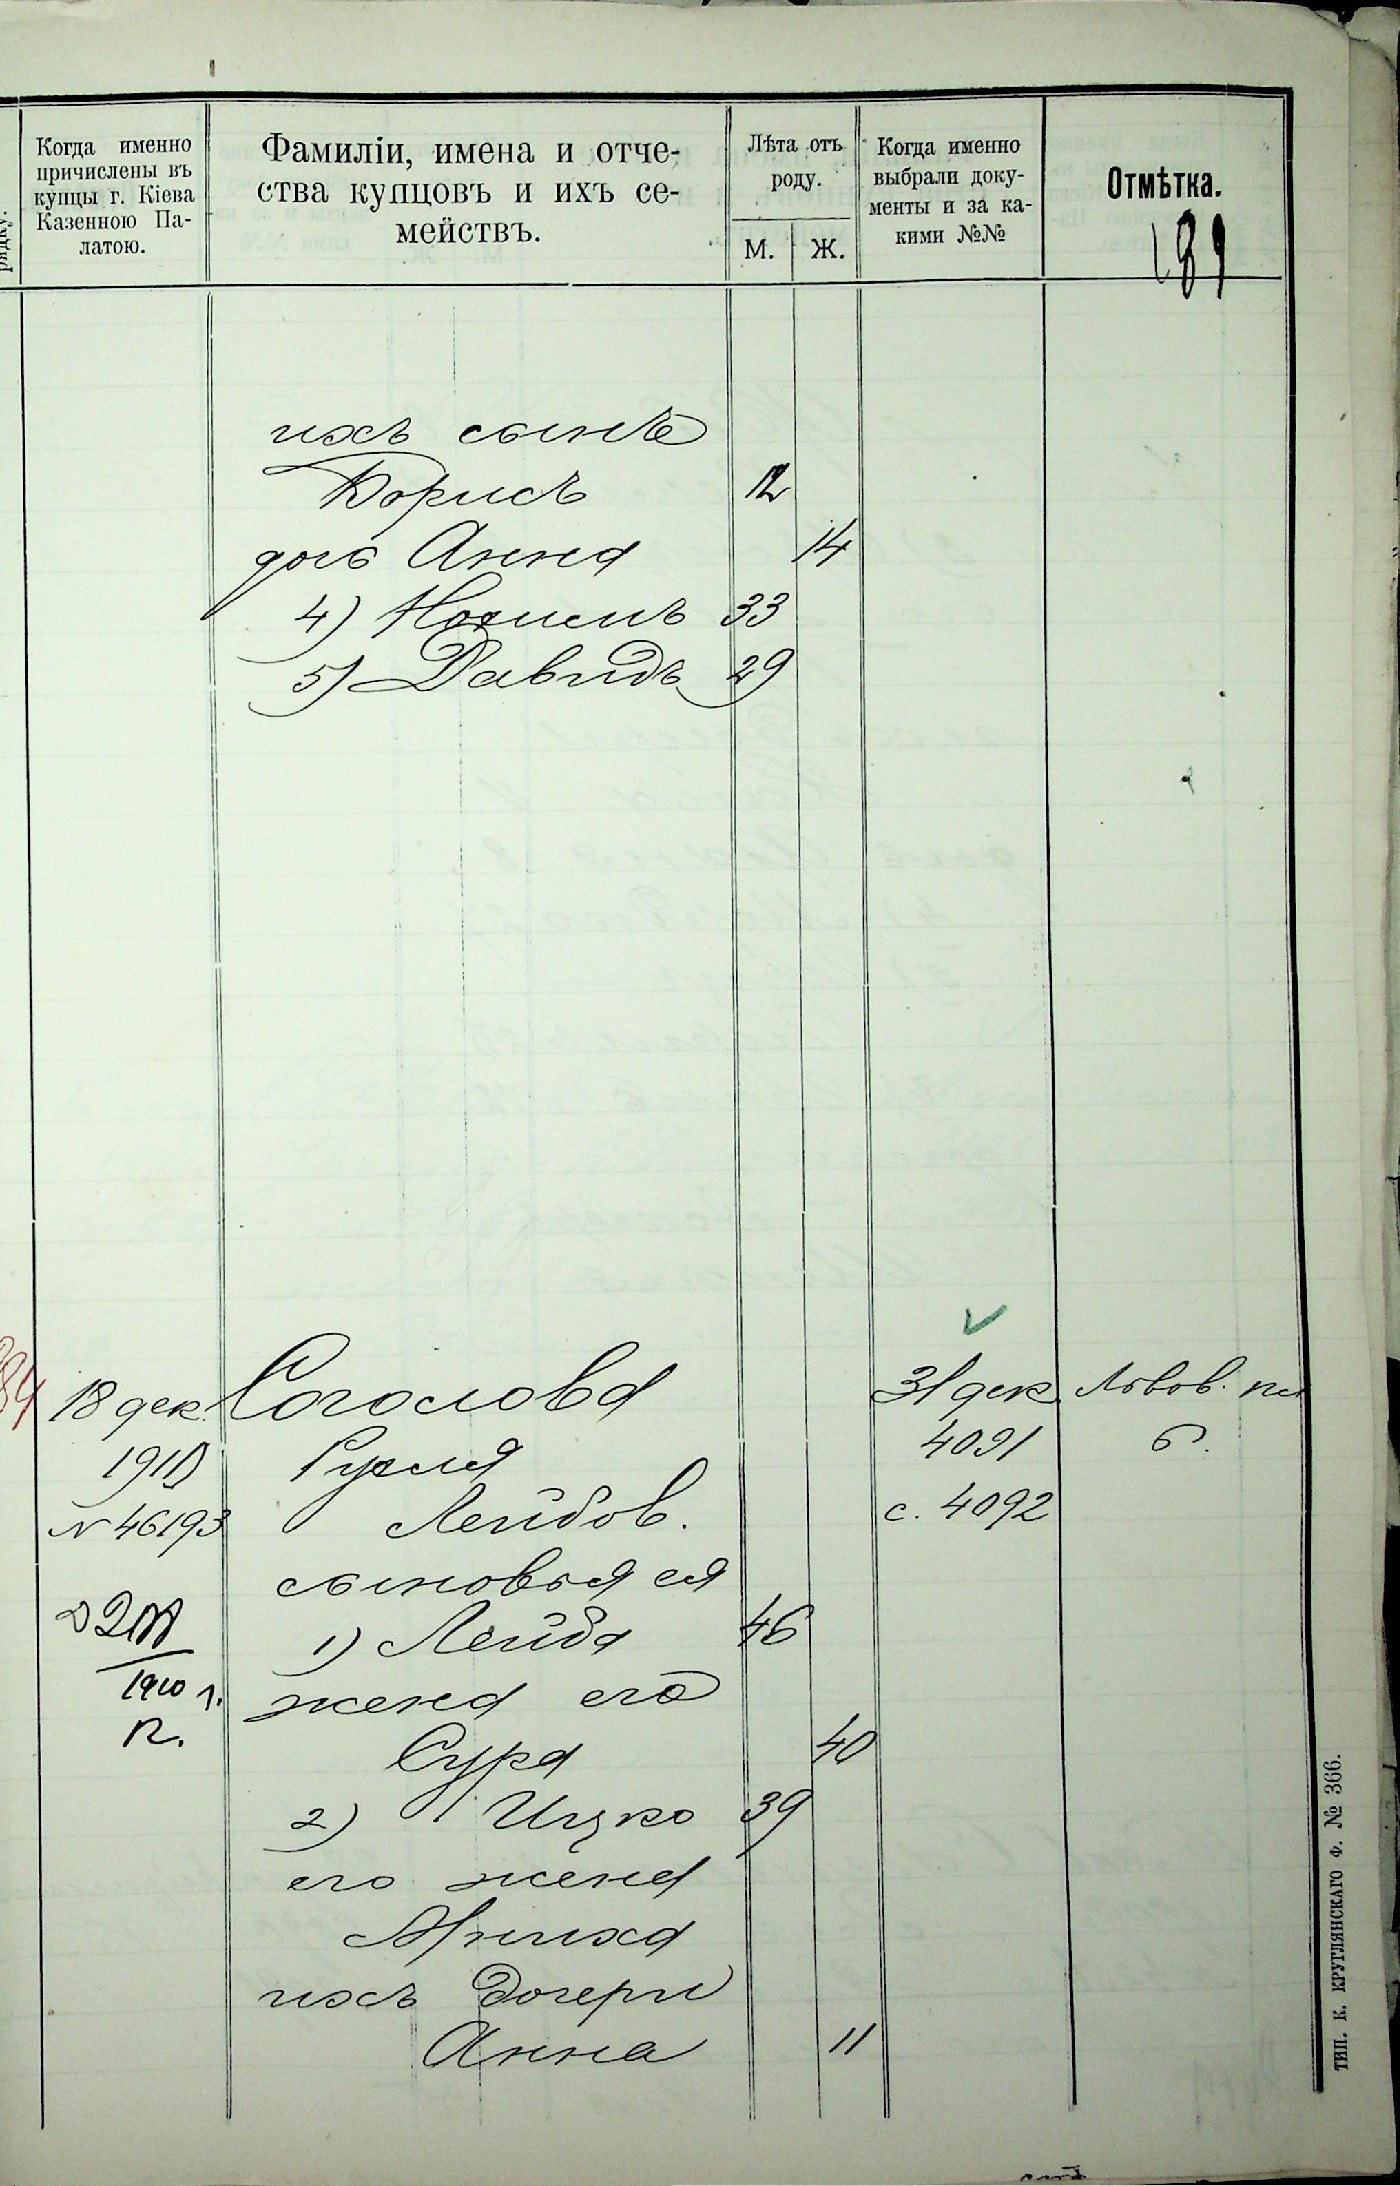 189
рядку.
Когда именно
причислены въ
купцы г. Кіева
Казенною Па-
латою.
Фамиліи, имена и отче-
ства купцовъ и ихъ се-
мействъ.
Лѣта отъ
роду.
М.
Ж.
Когда именно
выбрали доку-
менты и за ка-
кими №№
Отмѣтка.
ихъ сынъ
Борисъ 12
дочь Анна 14
4) Нохимъ 33
5) Давидъ 29
84 18 дек. Соголова 31 дек. Львов. пл
1910 Рухля 4091 6.
N 46193 Лейбов. с. 4092
сыновья ея
1) Лейба 46
1910 г. жена его
п. Сура 40
2) Ицко 39
его жена
ихъ дочери
Анна 11
ТИП. К. КРУГЛЯНСКАГО Ф. № 366.